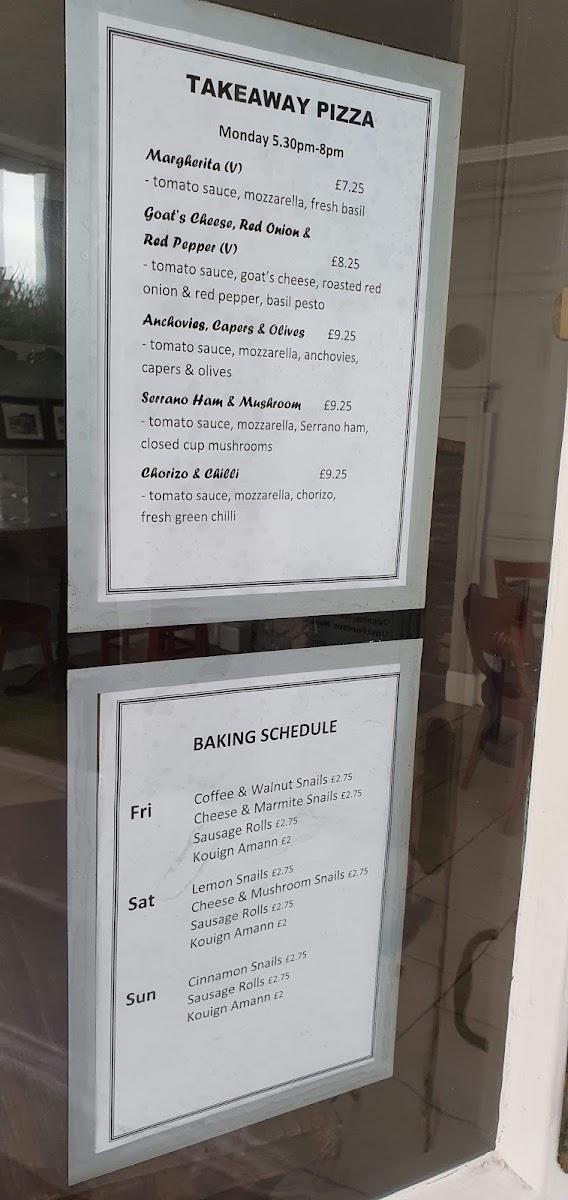 TAKEAWAY PIZZA
Monday 5.30pm-8pm
Margherita (V) £7.25
- tomato sauce, mozzarella, fresh basil
Goat's Cheese, Red Onion &
Red Pepper (V) £8.25
- tomato sauce, goat's cheese, roasted red
onion & red pepper, basil pesto
Anchovies, Capers & Olives £9.25
- tomato sauce, mozzarella, anchovies,
capers & olives
Serrano Ham & Mushroom £9.25
- tomato sauce, mozzarella, Serrano ham,
closed cup mushrooms
Chorizo & Chilli £9.25
- tomato sauce, mozzarella, chorizo,
fresh green chilli
BAKING SCHEDULE
Fri
Coffee & Walnut Snails £2.75
Cheese & Marmite Snails £2.75
Sausage Rolls £2.75
Kouign Amann £2
Sat
Lemon Snails £2.75
Cheese & Mushroom Snails £2.75
Sausage Rolls £2.75
Kouign Amann £2
Sun
Cinnamon Snails £2.75
Sausage Rolls £2.75
Kouign Amann £2